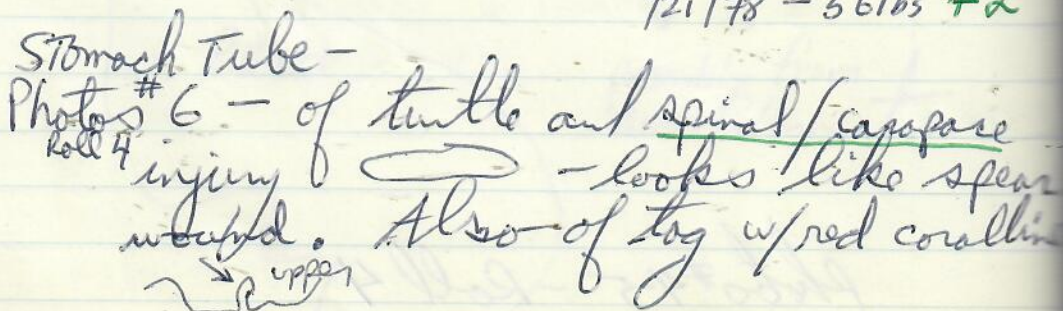 /21/78 - 56 lbs +2
Stomach Tube -
Photos #6 - of turtle and spinal/carapace
Roll 4
injury - looks like spear
wound. Also of tag w/red corallin
upper